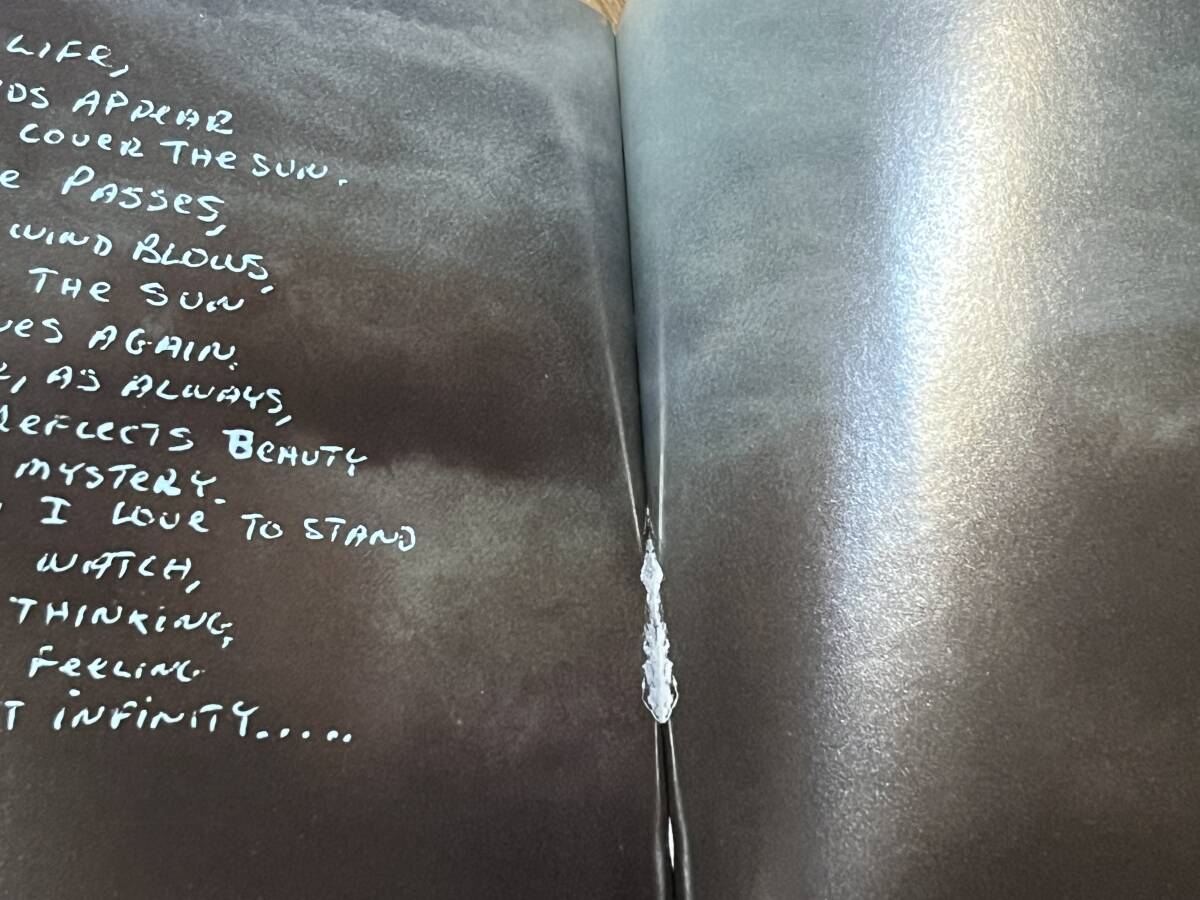 LIFE,
DS APPEAR
COVER THE SUN.
E PASSES,
WIND BLOWS,
THE SUN
ES AGAIN.
, AS ALWAYS,
REFLECTS BEAUTY
MYSTERY.
I LOVE TO STAND
WATCH,
THINKING,
FEELING
T INFINITY.....